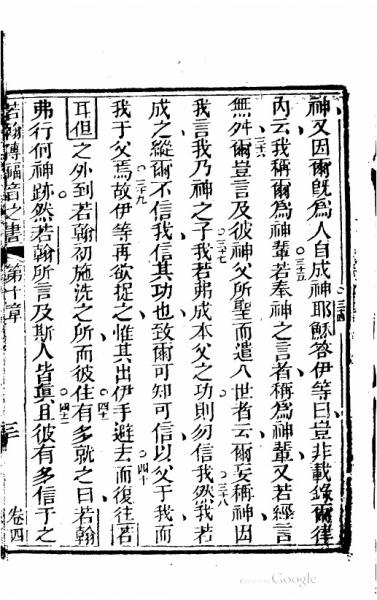 神又因爾旣爲人自成神耶穌答伊等曰豈非載錄爾律
三四
內云我稱爾爲神輩若奉神之言者稱爲神輩又若經言
三五
無舛爾豈言及彼神父所聖而遣入世者云爾妄稱神因
三六
我言我乃神之子我若弗成本父之功則勿信我然我若
三七
三八
成之縱爾不信我信其功也致爾可知可信以父于我而
三九
我于父焉故伊等再欲捉之惟其出伊手避去而復往若
四十
耳但之外到若翰初施洗之所而彼住有多就之曰若翰
四一
弗行何神跡然若翰所言及斯人皆眞且彼有多信于之
四二
若翰傳福音之書
第十章
三
卷四
Google